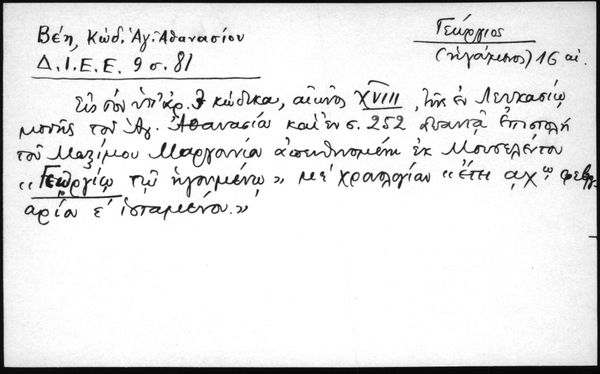 Βέη, Κώδ. Ἁγ. Ἀθανασίου
Δ.Ι.Ε.Ε. 9 σ. 81
Γεώργιος
(ἡγούμενος) 16 αἰ.
Εἰς τὸν ὑπ' ἀρ. κώδικα, αἰῶνος XVIII, τῆς ἐν Λευκασίῳ
μονῆς τοῦ Ἁγ. Ἀθανασίου καὶ ἐν σ. 252 ἀπαντᾷ ἐπιστολὴ
τοῦ Μαξίμου Μαργουνίου ἀπευθυνομένη ἐκ
«Γεωργίῳ τῷ ἡγουμένῳ» μὲ χρονολογίαν «ἔτει αχῳ φεβρου-
αρίου ε' ἱσταμένου.»